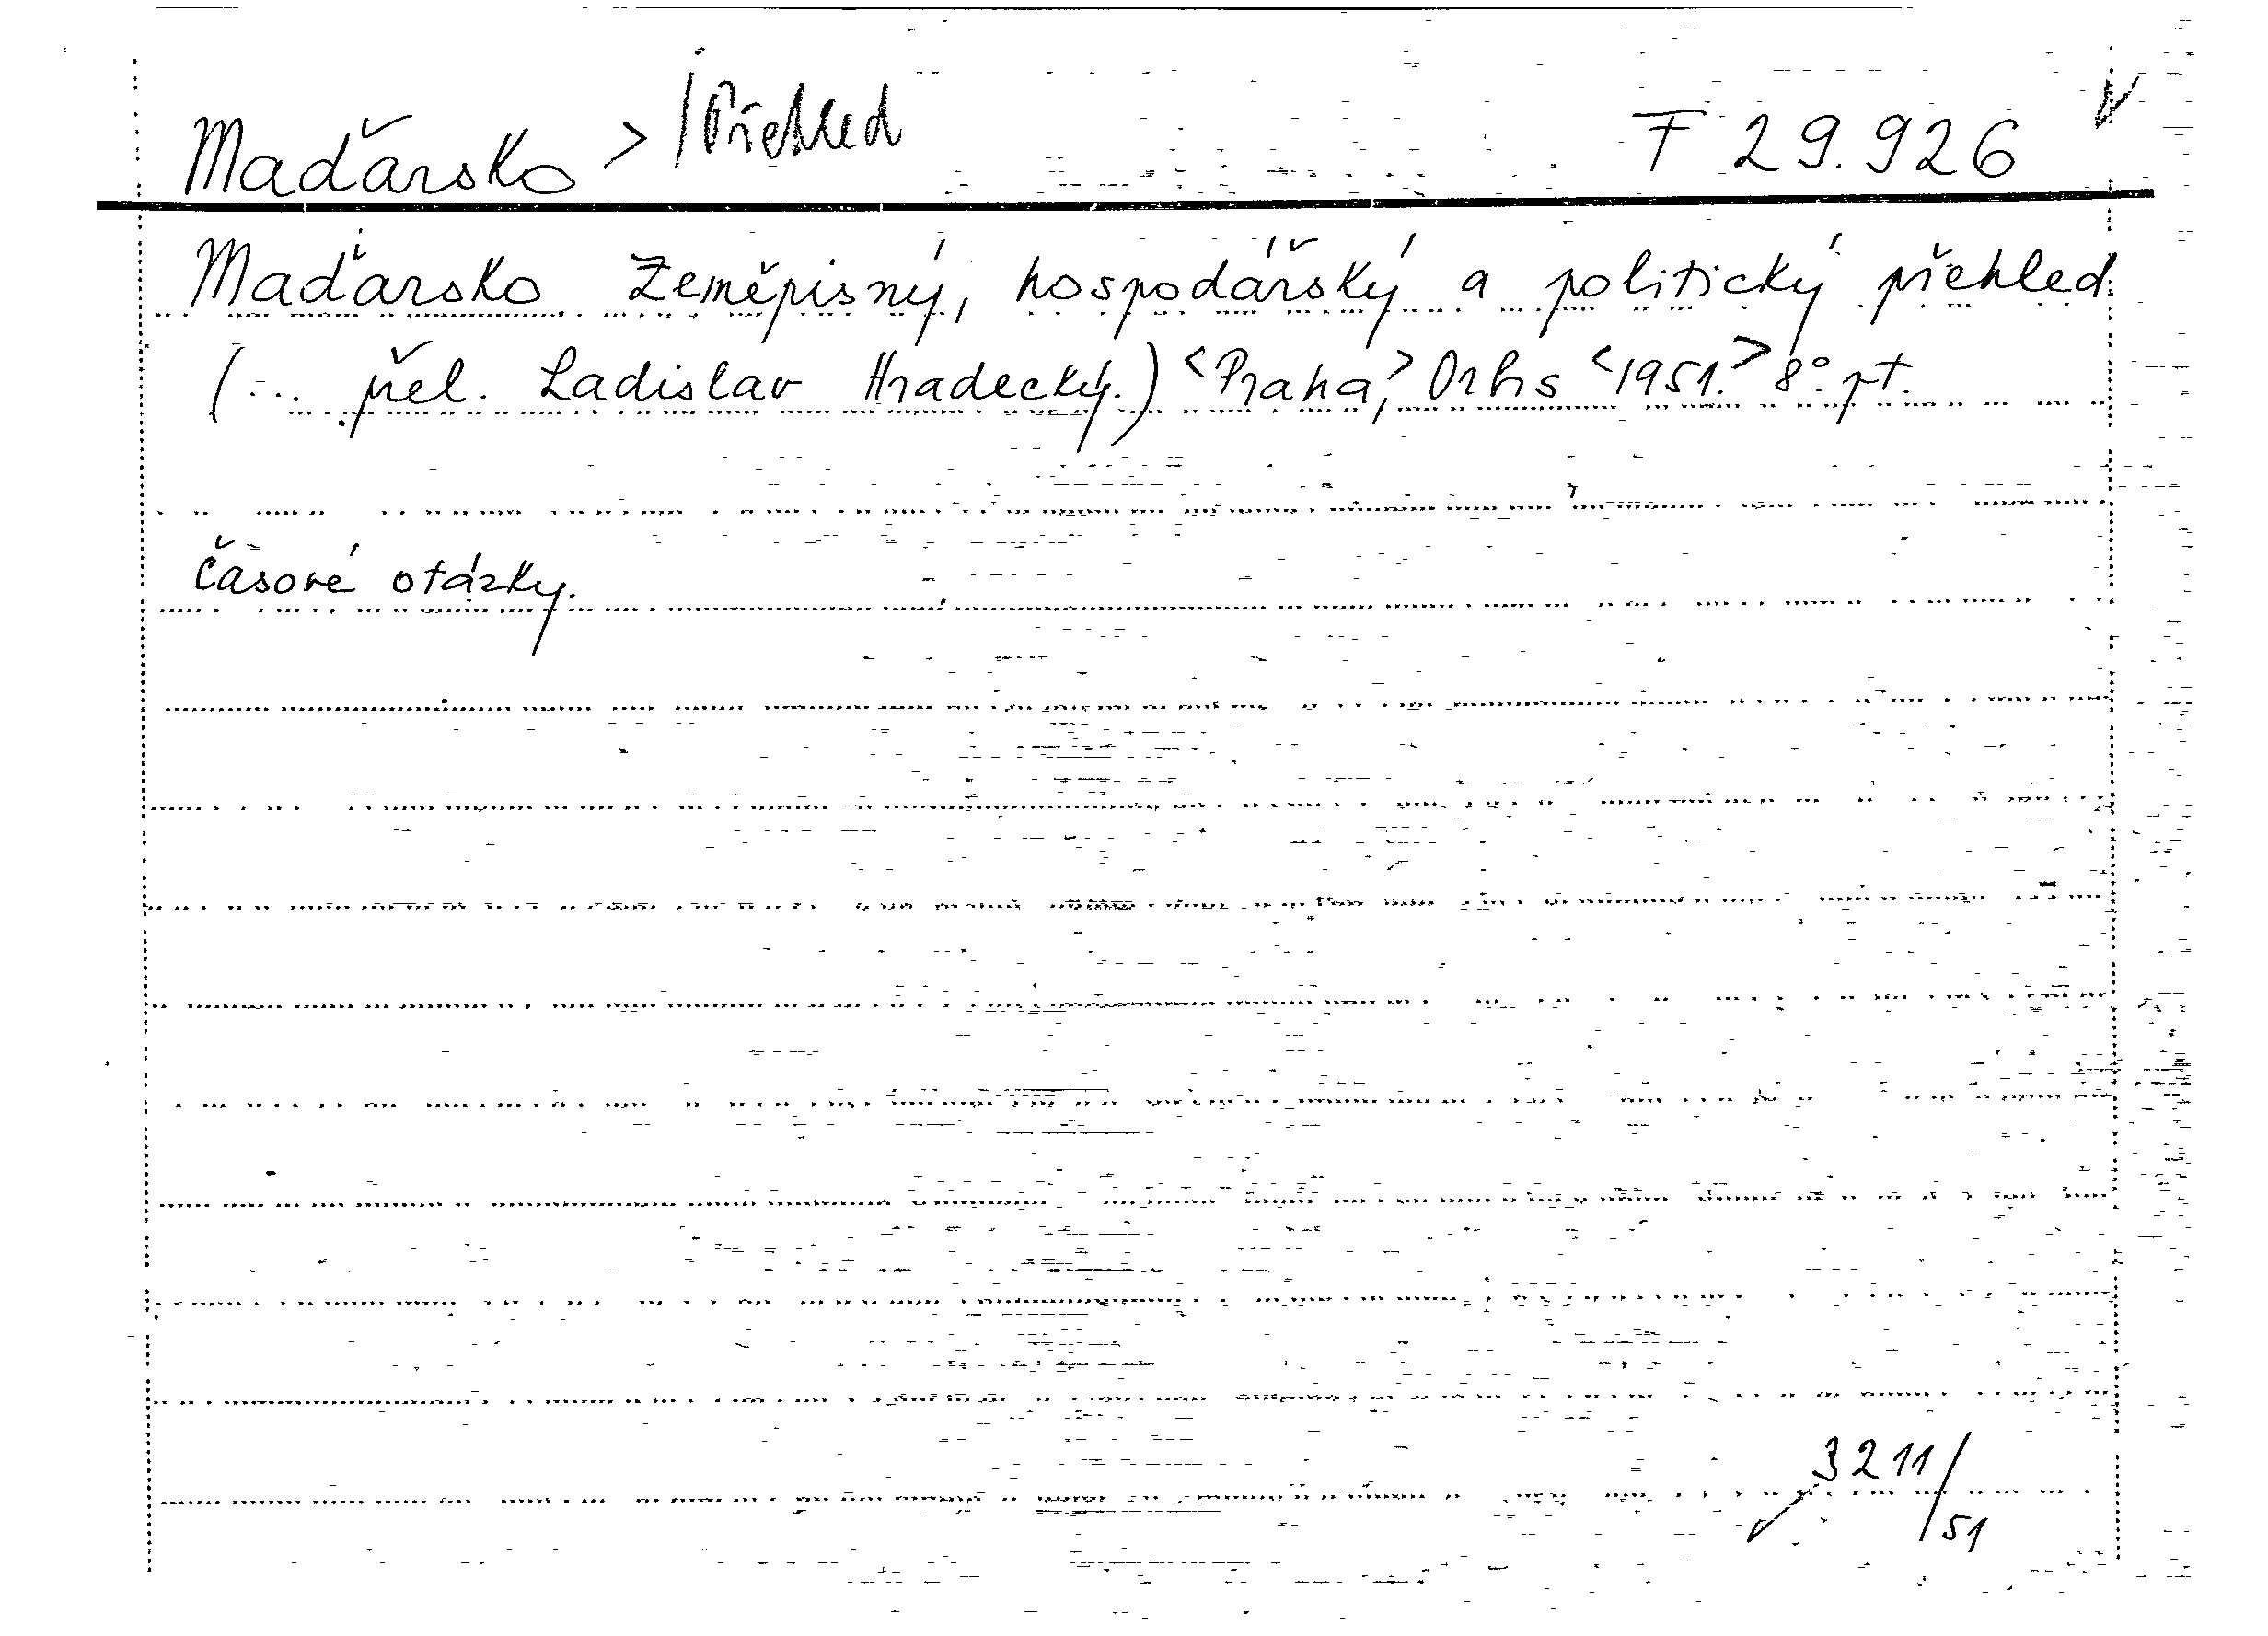 Maďarsko > /Přehled F 29.926
Maďarsko. Zeměpisný, hospodářský a politický přehled.
(... přel. Ladislav Hradecký.) <Praha,> Orbis <1951.> 8°. pt.
Časové otázky.
3211/51